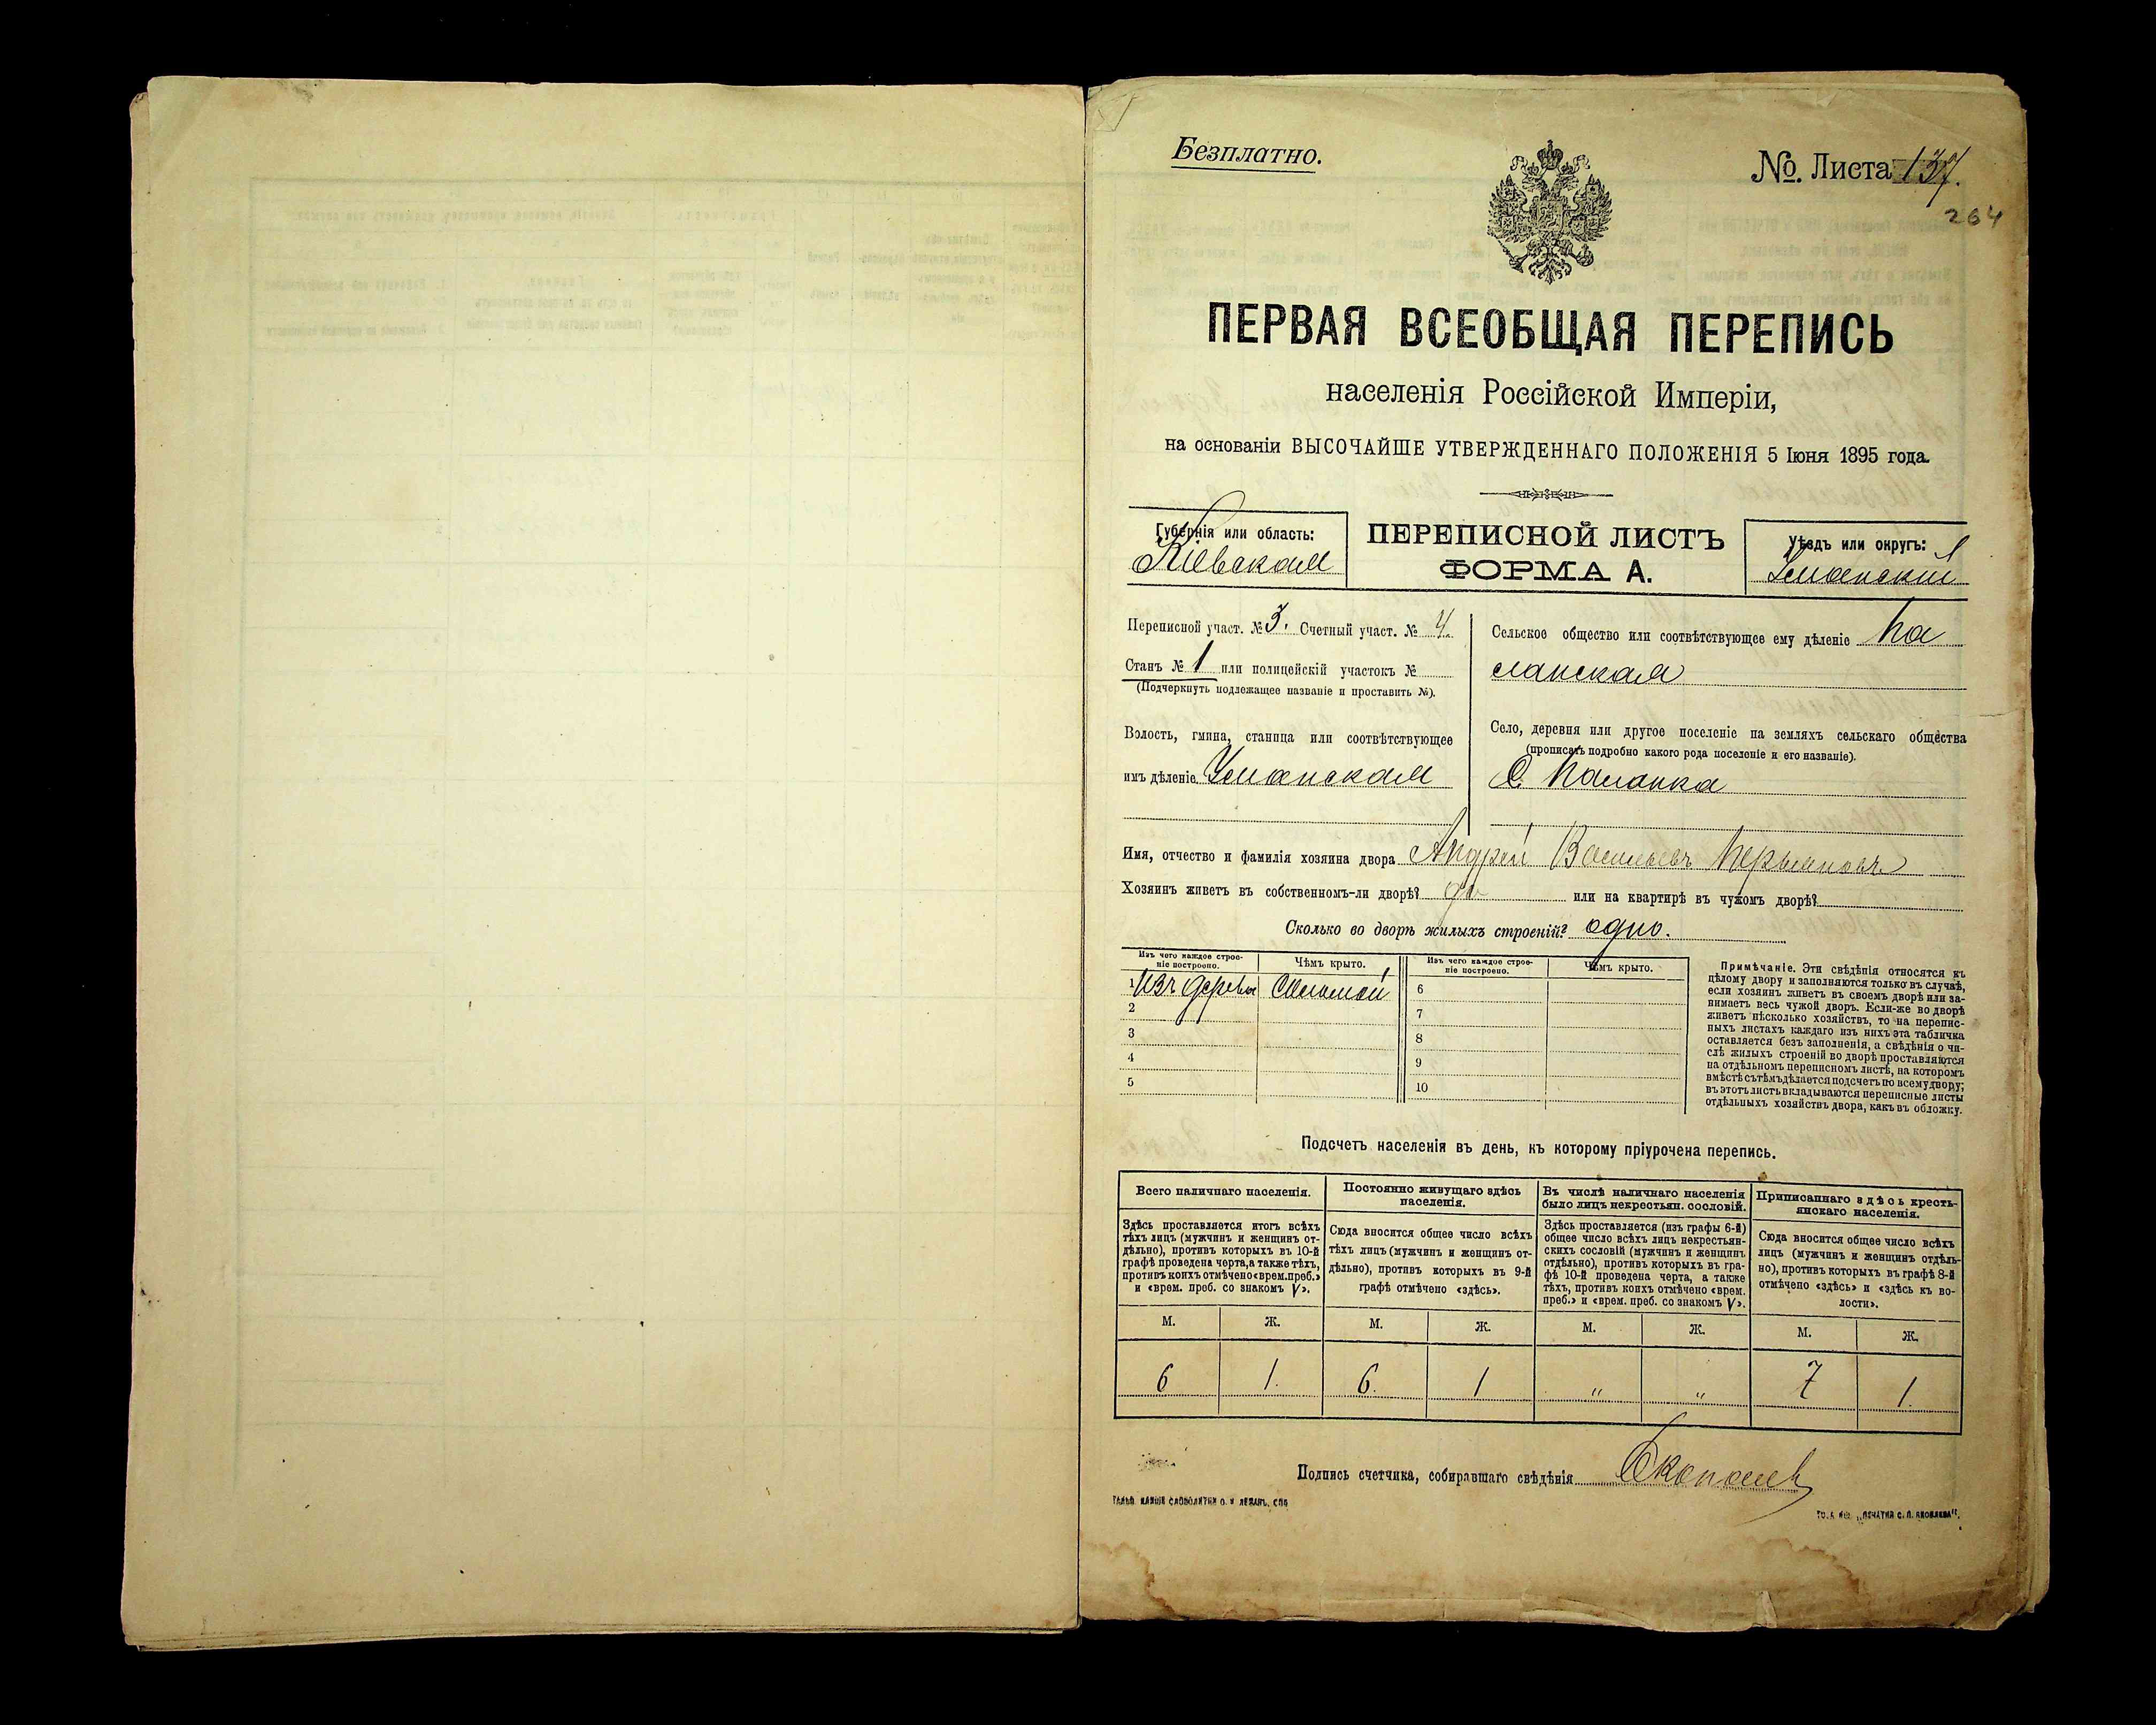 Безплатно.
№. Листа 137.
264
ПЕРВАЯ ВСЕОБЩАЯ ПЕРЕПИСЬ
населенія Россійской Имперіи,
на основаніи ВЫСОЧАЙШЕ УТВЕРЖДЕННАГО ПОЛОЖЕНІЯ 5 Іюня 1895 года.
Губернія или область:
Кіевская
ПЕРЕПИСНОЙ ЛИСТЪ
ФОРМА А.
Уѣздъ или округъ:
Уманскій
Переписной участ. № 3. Счетный участ. № 4.
Станъ № 1 или полицейскій участокъ №
(Подчеркнуть подлежащее названіе и проставить №).
Волость, гмина, станица или соотвѣтствующее
имъ дѣленіе Уманская
Сельское общество или соотвѣтствующее ему дѣленіе Па
ланская
Село, деревня или другое поселеніе на земляхъ сельскаго общества
(прописать подробно какого рода поселеніе и его названіе).
С. Паланка
Имя, отчество и фамилія хозяина двора Андрей Васильевъ
Хозяинъ живетъ въ собственномъ-ли дворѣ? да или на квартирѣ въ чужомъ дворѣ?
Сколько во дворѣ жилыхъ строеній? одно.
Изъ чего каждое строе-
ніе построено.
Чѣмъ крыто.
Изъ чего каждое строе-
ніе построено.
Чѣмъ крыто.
1 Изъ дерева Соломой
2
3
4
5
6
7
8
9
10
Примѣчаніе. Эти свѣдѣнія относятся къ
цѣлому двору и заполняются только въ случаѣ,
если хозяинъ живетъ въ своемъ дворѣ или за-
нимаетъ весь чужой дворъ. Если-же во дворѣ
живетъ нѣсколько хозяйствъ, то на перепис-
ныхъ листахъ каждаго изъ нихъ эта табличка
оставляется безъ заполненія, а свѣдѣнія о чи-
слѣ жилыхъ строеній во дворѣ проставляются
на отдѣльномъ переписномъ листѣ, на которомъ
вмѣстѣ съ тѣмъ дѣлается подсчетъ по всему двору;
въ этотъ листъ вкладываются переписные листы
отдѣльныхъ хозяйствъ двора, какъ въ обложку.
Подсчетъ населенія въ день, къ которому пріурочена перепись.
Всего наличнаго населенія.
Здѣсь проставляется итогъ всѣхъ
тѣхъ лицъ (мужчинъ и женщинъ от-
дѣльно), противъ которыхъ въ 10-й
графѣ проведена черта, а также тѣхъ,
противъ коихъ отмѣчено «врем. преб.»
и «врем. преб. со знакомъ V».
Постоянно живущаго здѣсь
населенія.
Сюда вносится общее число всѣхъ
тѣхъ лицъ (мужчинъ и женщинъ от-
дѣльно), противъ которыхъ въ 9-й
графѣ отмѣчено «здѣсь».
Въ числѣ наличнаго населенія
было лицъ некрестьян. сословій.
Здѣсь проставляется (изъ графы 6-й)
общее число всѣхъ лицъ некрестьян-
скихъ сословій (мужчинъ и женщинъ
отдѣльно), противъ которыхъ въ гра-
фѣ 10-й проведена черта, а также
тѣхъ, противъ коихъ отмѣчено «врем.
преб.» и «врем. преб. со знакомъ V».
Приписаннаго здѣсь кресть-
янскаго населенія.
Сюда вносится общее число всѣхъ
лицъ (мужчинъ и женщинъ отдѣль-
но), противъ которыхъ въ графѣ 8-й
отмѣчено «здѣсь» и «здѣсь къ во-
лости».
М. Ж. М. Ж. М. Ж. М. Ж.
6 1. 6. 1 " " 7 1.
Подпись счетчика, собиравшаго свѣдѣнія